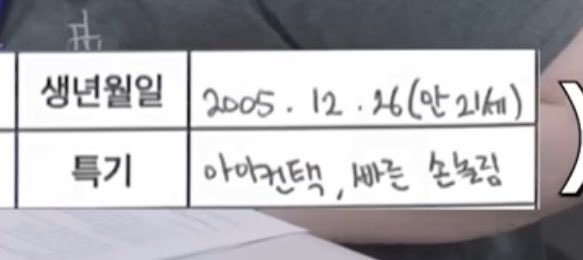 생년월일 2005. 12. 26(만 21세)
특기 아이컨택, 빠른 손놀림
)